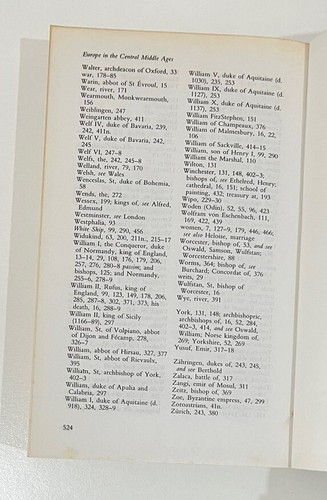 Europe in the Central Middle Ages
Walter, archdeacon of Oxford, 33
war, 178–85
Warin, abbot of St Évroul, 15
Wear, river, 171
Wearmouth, Monkwearmouth,
156
Weiblingen, 247
Weingarten abbey, 411
Welf IV, duke of Bavaria, 239,
242, 411n.
Welf V, duke of Bavaria, 242,
245
Welf VI, 247–8
Welfs, the, 242, 245–8
Welland, river, 79, 170
Welsh, see Wales
Wenceslas, St, duke of Bohemia,
58
Wends, the, 272
Wessex, 199; kings of, see Alfred,
Edmund
Westminster, see London
Westphalia, 93
White Ship, 99, 290, 456
Widukind, 63, 200, 211n., 215–17
William I, the Conqueror, duke
of Normandy, king of England,
13–14, 29, 108, 176, 179, 206,
257, 276, 280–8 passim; and
bishops, 125; and Normandy,
255–6, 278–9
William II, Rufus, king of
England, 99, 123, 149, 178, 206,
285, 287–8, 302, 371, 373; his
death, 16, 288–9
William II, king of Sicily
(1166–89), 297
William, St, of Volpiano, abbot
of Dijon and Fécamp, 278,
326–7
William, abbot of Hirsau, 327, 377
William, St, abbot of Rievaulx,
395
William, St, archbishop of York,
402–3
William, duke of Apulia and
Calabria, 297
William I, duke of Aquitaine (d.
918), 324, 328–9
William V, duke of Aquitaine (d.
1030), 235, 253
William IX, duke of Aquitaine (d.
1127), 253
William X, duke of Aquitaine (d.
1137), 253
William FitzStephen, 151
William of Champeaux, 376
William of Malmesbury, 16, 22,
106
William of Sackville, 414–15
William, son of Henry I, 99, 290
William the Marshal, 110
Wilton, 131
Winchester, 131, 148, 402–3;
bishops of, see Ethelred, Henry;
cathedral, 16, 151; school of
painting, 432; treasury at, 193
Wipo, 229–30
Woden (Odin), 52, 55, 96, 423
Wolfram von Eschenbach, 111,
169, 422, 439
women, 7, 127–9, 179, 446, 466;
see also Heloise, marriage
Worcester, bishop of, 53, and see
Oswald, Samson, Wulfstan;
Worcestershire, 88
Worms, 364; bishop of, see
Burchard; Concordat of, 376
weirs, 29
Wulfstan, St, bishop of
Worcester, 16
Wye, river, 391
York, 131, 148; archbishopric,
archbishops of, 16, 52, 284,
402–3, 414, and see Oswald,
William; Norse kingdom of,
269; Yorkshire, 52, 269
Yusuf, Emir, 317–18
Zähringen, dukes of, 243, 245,
and see Berthold
Zalaca, battle of, 317
Zangi, emir of Mosul, 311
Zeitz, bishop of, 369
Zoe, Byzantine empress, 47, 299
Zoroastrians, 41n.
Zürich, 243, 380
524